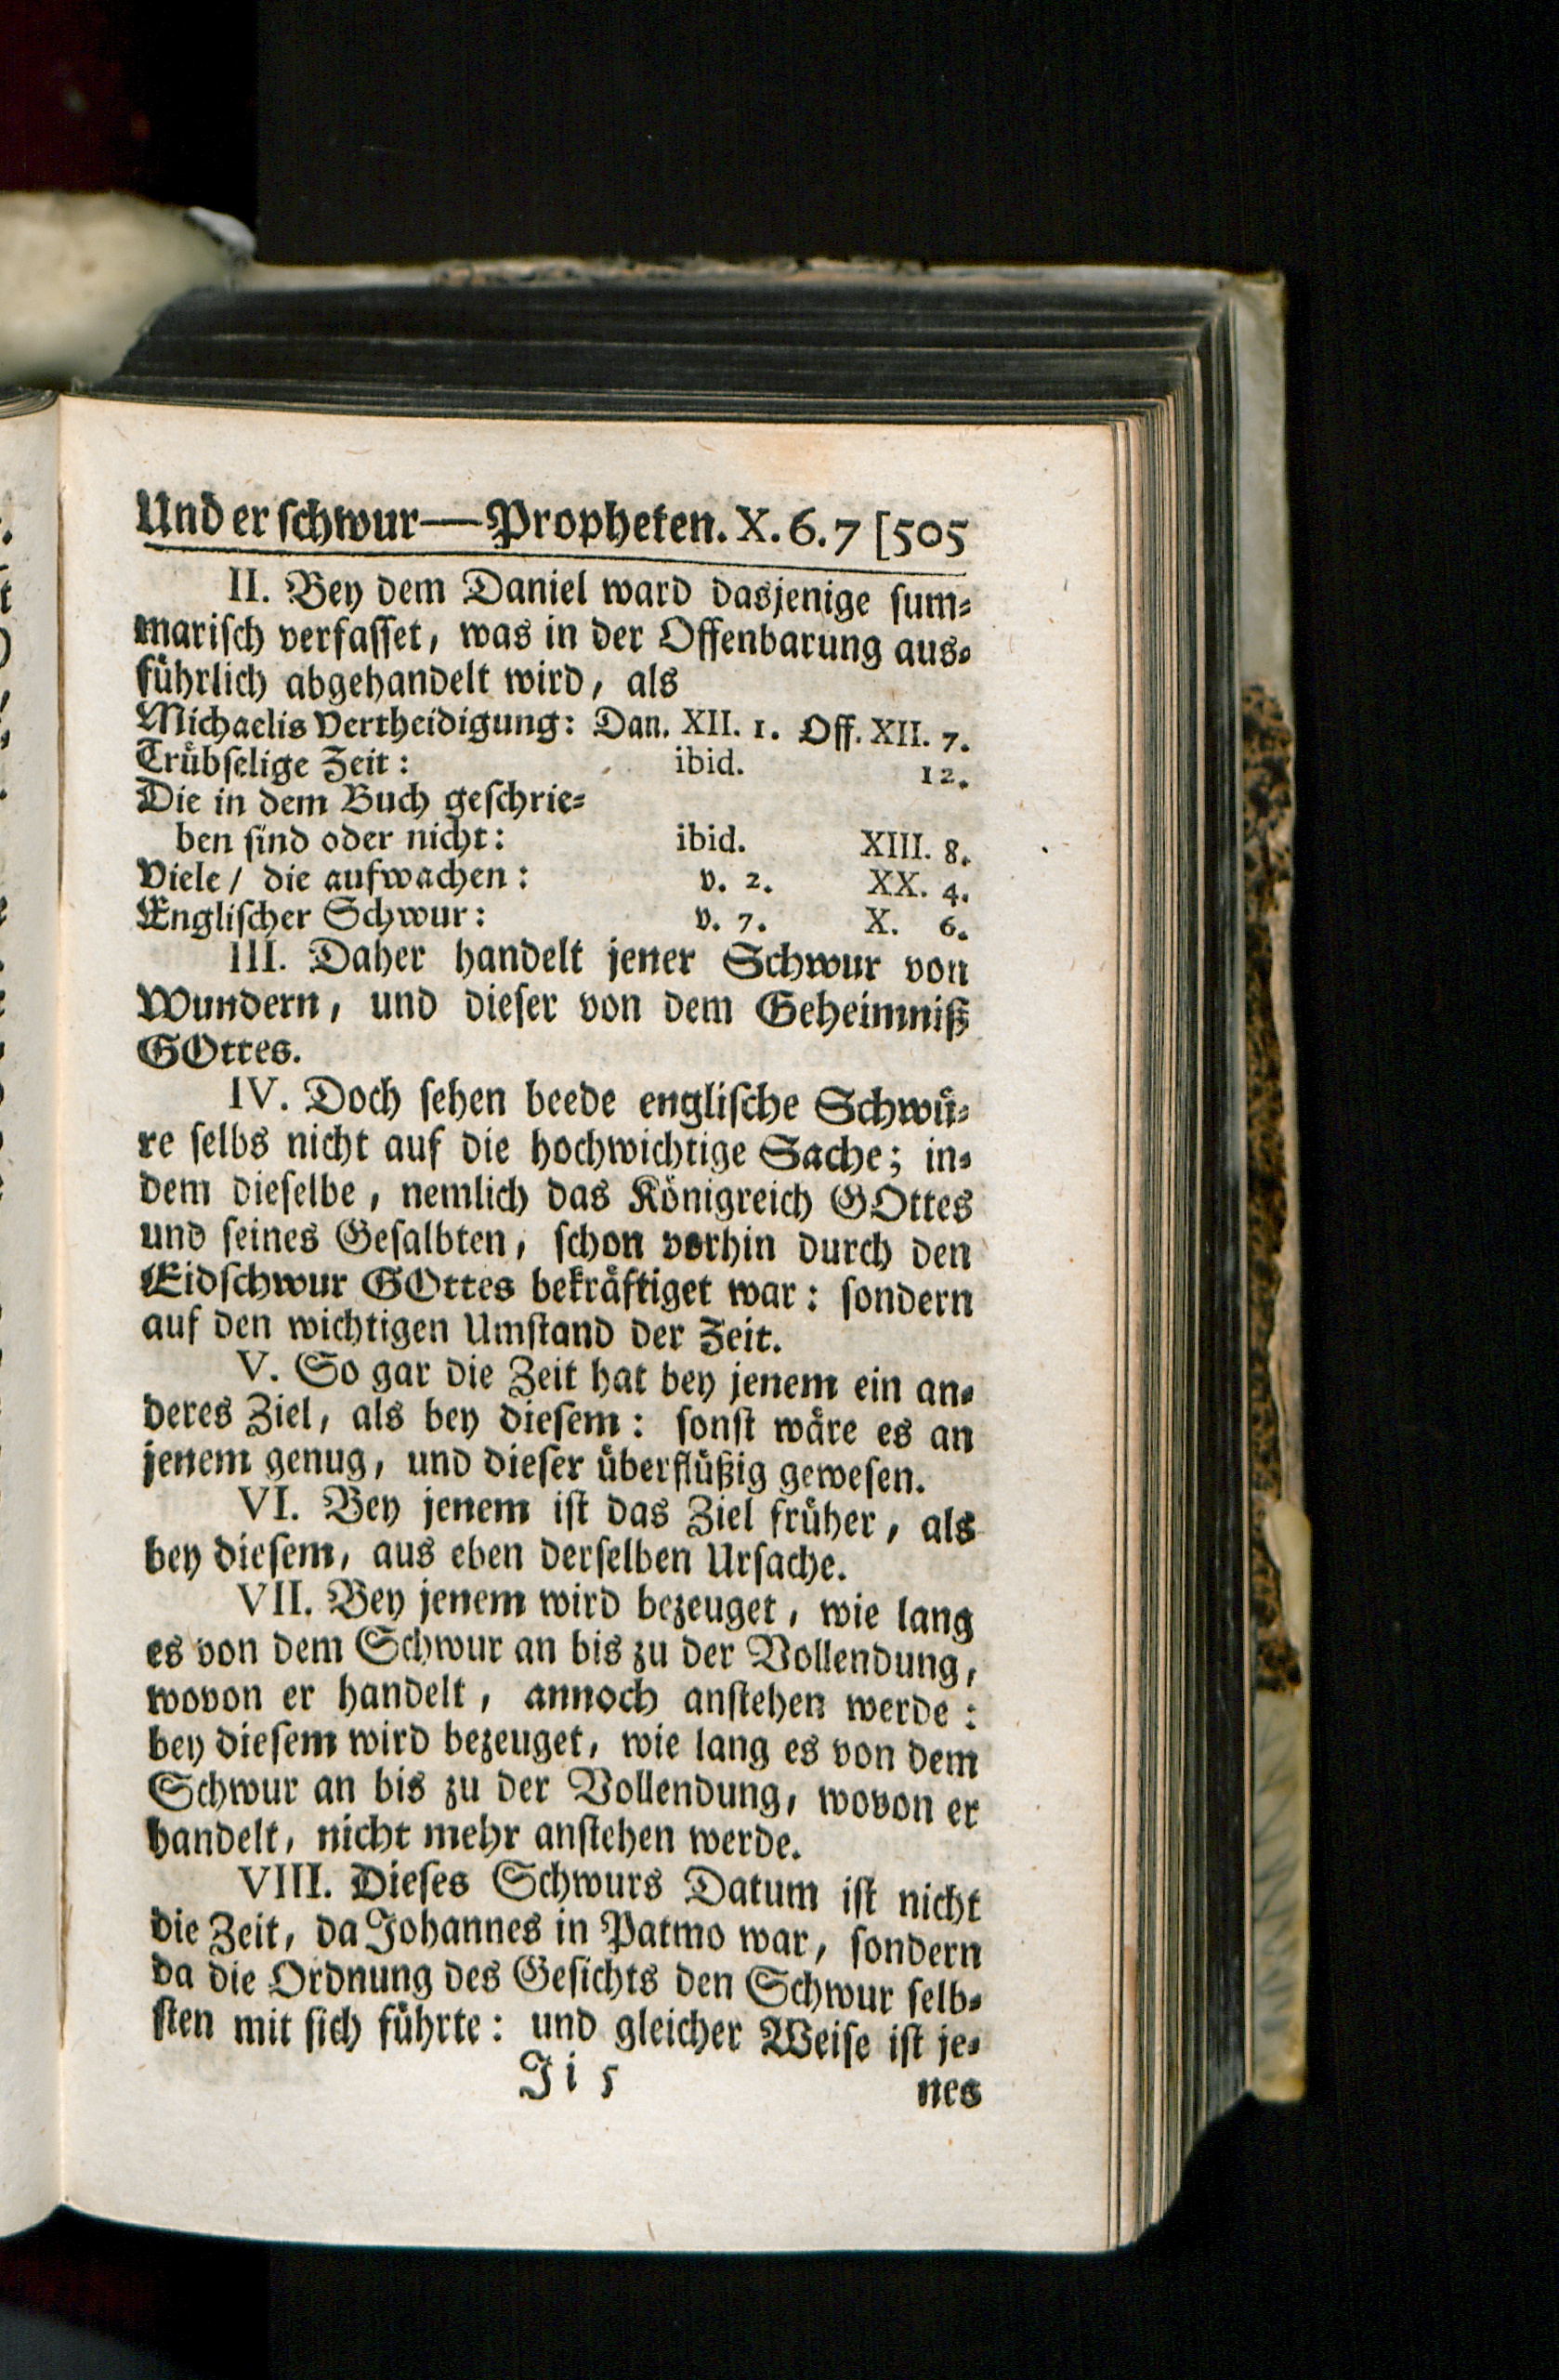 Und er ſchwur—Propheten. X. 6. 7 [505
II. Bey dem Daniel ward dasjenige ſum⸗
mariſch verfaſſet, was in der Offenbarung aus⸗
führlich abgehandelt wird, als
Michaelis Vertheidigung: Dan. XII. 1. Off. XII. 7.
Trübſelige Zeit: ibid. 12.
Die in dem Buch geſchrie⸗
ben ſind oder nicht: ibid. XIII. 8.
Viele / die aufwachen: v. 2. XX. 4.
Engliſcher Schwur: v. 7. X. 6.
III. Daher handelt jener Schwur von
Wundern, und dieſer von dem Geheimniß
GOttes.
IV. Doch ſehen beede engliſche Schwü⸗
re ſelbs nicht auf die hochwichtige Sache; in⸗
dem dieſelbe, nemlich das Königreich GOttes
und ſeines Geſalbten, ſchon vorhin durch den
Eidſchwur GOttes bekräftiget war: ſondern
auf den wichtigen Umſtand der Zeit.
V. So gar die Zeit hat bey jenem ein an⸗
deres Ziel, als bey dieſem: ſonſt wäre es an
jenem genug, und dieſer überflüßig geweſen.
VI. Bey jenem iſt das Ziel früher, als
bey dieſem, aus eben derſelben Urſache.
VII. Bey jenem wird bezeuget, wie lang
es von dem Schwur an bis zu der Vollendung,
wovon er handelt, annoch anſtehen werde:
bey dieſem wird bezeuget, wie lang es von dem
Schwur an bis zu der Vollendung, wovon er
handelt, nicht mehr anſtehen werde.
VIII. Dieſes Schwurs Datum iſt nicht
die Zeit, da Johannes in Patmo war, ſondern
da die Ordnung des Geſichts den Schwur ſelb⸗
ſten mit ſich führte: und gleicher Weiſe iſt je⸗
Ji 5 nes